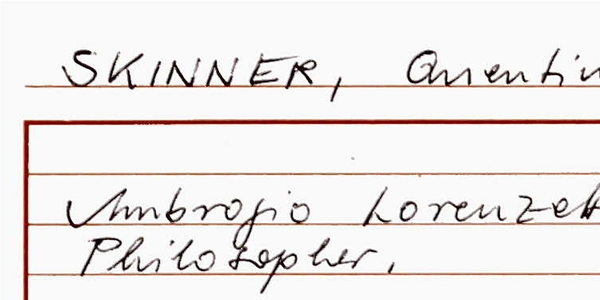 SKINNER, Quentin
Ambrogio Lorenzett
Philosopher,